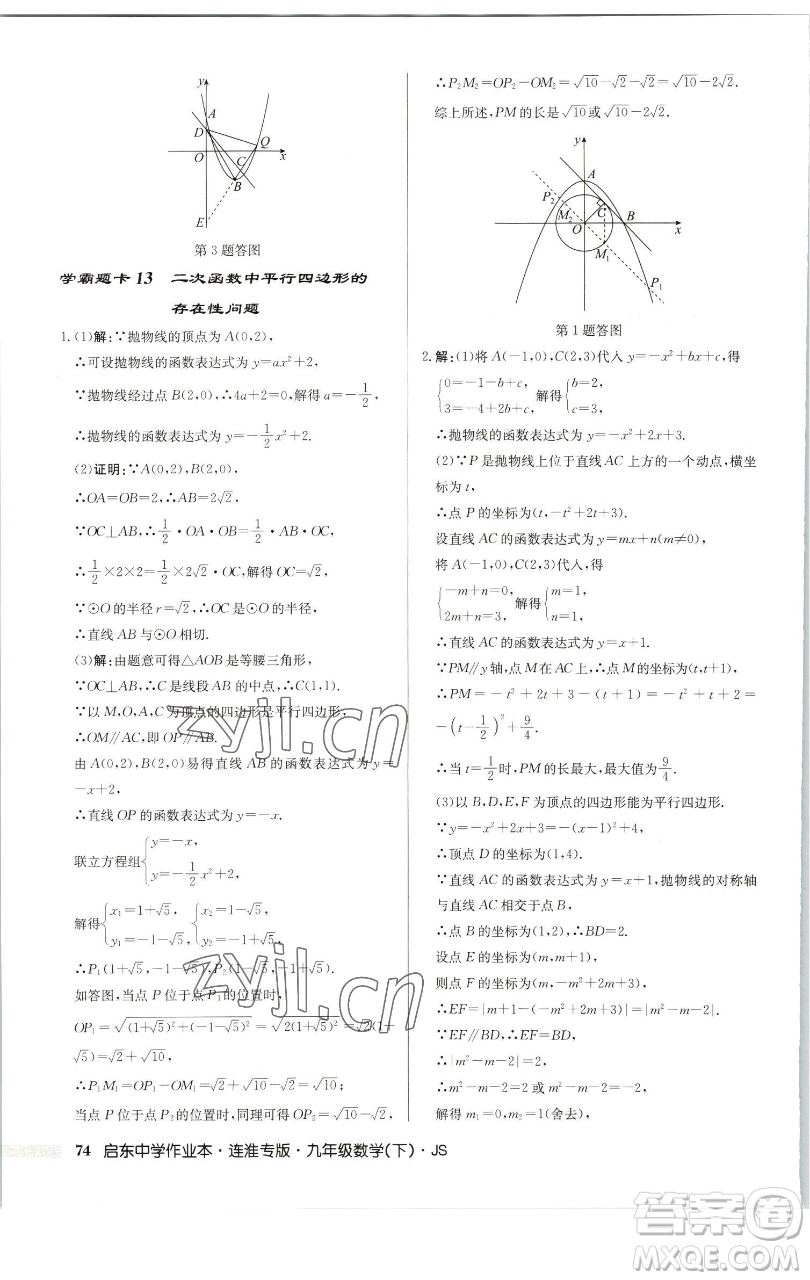 y
A
D
Q
O
C
x
B
E
第3题答图
学霸题卡13 二次函数中平行四边形的
存在性问题
1.(1)解:∵抛物线的顶点为A(0,2),
∴可设抛物线的函数表达式为y=ax²+2,
∵抛物线经过点B(2,0),∴4a+2=0,解得a=-1/2,
∴抛物线的函数表达式为y=-1/2x²+2.
(2)证明:∵A(0,2),B(2,0),
∴OA=OB=2,∴AB=2√2,
∵OC⊥AB,∴1/2·OA·OB=1/2·AB·OC,
∴1/2×2×2=1/2×2√2·OC,解得OC=√2,
∵⊙O的半径r=√2,∴OC是⊙O的半径,
∴直线AB与⊙O相切.
(3)解:由题意可得△AOB是等腰三角形,
∵OC⊥AB,∴C是线段AB的中点,∴C(1,1).
∵以M,O,A,C为顶点的四边形是平行四边形,
∴OM∥AC,即OP∥AB.
由A(0,2),B(2,0)易得直线AB的函数表达式为y=
-x+2,
∴直线OP的函数表达式为y=-x.
联立方程组{y=-x, y=-1/2x²+2,
解得{x₁=1+√5, y₁=-1-√5, {x₂=1-√5, y₂=-1+√5,
∴P₁(1+√5,-1-√5),P₂(1-√5,-1+√5).
如答图,当点P位于点P₁的位置时,
OP₁=√((1+√5)²+(-1-√5)²)=√(2(1+√5)²)=√2(1+
√5)=√2+√10,
∴P₁M₁=OP₁-OM₁=√2+√10-√2=√10;
当点P位于点P₂的位置时,同理可得OP₂=√10-√2,
∴P₂M₂=OP₂-OM₂=√10-√2-√2=√10-2√2.
综上所述,PM的长是√10或√10-2√2.
y
A
P₂
M₂
C
B
O
x
M₁
P₁
第1题答图
2.解:(1)将A(-1,0),C(2,3)代入y=-x²+bx+c,得
{0=-1-b+c, 3=-4+2b+c, 解得{b=2, c=3,
∴抛物线的函数表达式为y=-x²+2x+3.
(2)∵P是抛物线上位于直线AC上方的一个动点,横坐
标为t,
∴点P的坐标为(t,-t²+2t+3).
设直线AC的函数表达式为y=mx+n(m≠0),
将A(-1,0),C(2,3)代入,得
{-m+n=0, 2m+n=3, 解得{m=1, n=1,
∴直线AC的函数表达式为y=x+1.
∵PM∥y轴,点M在直线AC上,∴点M的坐标为(t,t+1),
∴PM=-t²+2t+3-(t+1)=-t²+t+2=
-(t-1/2)²+9/4.
∴当t=1/2时,PM的长最大,最大值为9/4.
(3)以B,D,E,F为顶点的四边形能为平行四边形.
∵y=-x²+2x+3=-(x-1)²+4,
∴顶点D的坐标为(1,4).
∵直线AC的函数表达式为y=x+1,抛物线的对称轴
与直线AC相交于点B,
∴点B的坐标为(1,2),∴BD=2.
设点E的坐标为(m,m+1),
则点F的坐标为(m,-m²+2m+3),
∴EF=|m+1-(-m²+2m+3)|=|m²-m-2|.
∵EF∥BD,∴EF=BD,
∴|m²-m-2|=2,
∴m²-m-2=2或m²-m-2=-2,
解得m₁=0,m₂=1(舍去),
zyjl.cn
zyjl.cn
74 启东中学作业本·连淮专版·九年级数学(下)·JS
答案卷
MXQE.COM